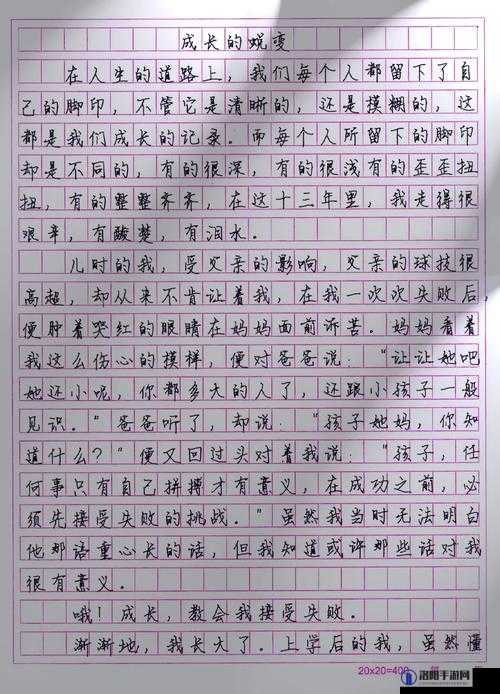 成长的蜕变
在人生的道路上，我们每个人都留下了自
己的脚印，不管它是清晰的，还是模糊的，这
都是我们成长的记录。而每个人所留下的脚印
却是不同的，有的很深，有的很浅有的歪歪扭
扭，有的整整齐齐，在这十三年里，我走得很
艰辛，有酸楚，有泪水。
儿时的我，受父亲的影响，父亲的球技很
高超，却从来不肯让着我，在我一次次失败后，
便肿着哭红的眼睛在妈妈面前诉苦。妈妈看着
我这么伤心的模样，便对爸爸说：“让让她吧
她还小呢，你都多大的人了，还跟小孩子一般
见识。”爸爸听了，却说：“孩子她妈，你知
道什么？”便又回过头对着我说：“孩子，任
何事只有自己拼搏才有意义，在成功之前，必
须先接受失败的挑战。”虽然我当时无法明白
他那语重心长的话，但我知道或许那些话对我
很有意义。
哦！成长，教会我接受失败。
渐渐地，我长大了。上学后的我，虽然懂
20x20=400
洛阳手游网